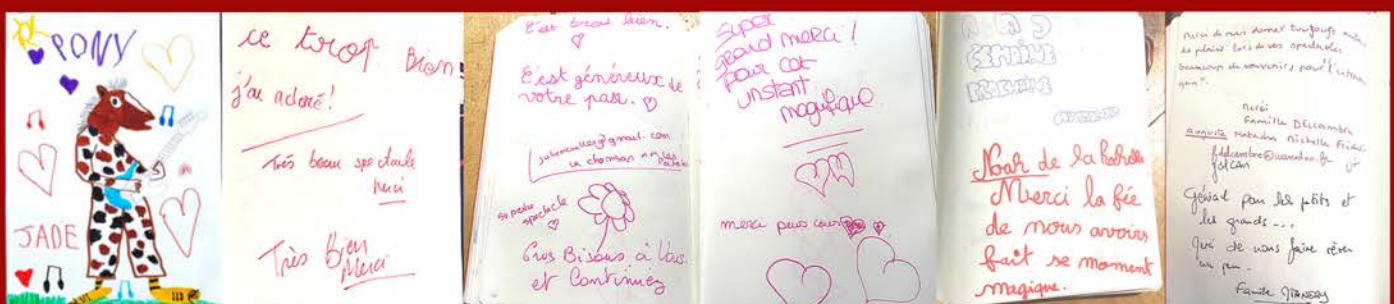 PONY
JADE
ce trop Bien
j'ai adoré!
Très beau spectacle
Merci
Très Bien
Merci
C'est trop bien.
C'est généreux de
votre part.
la chanson
superbe
spectacle
Gros Bisous à Vous
et Continuez
Super
grand merci!
pour cet
instant
magifique
merci
SEMAINE
PROCHAINE
Noah de la Rochelle
Merci la fée
de nous avoirs
fait se moment
magique.
Merci de nous donner toujours autant
de plaisir lors de vos spectacles
beaucoup de souvenirs pour
merci
Famille
Génial pour les petits et
les grands...
de nous faire rêver
un peu.
Famille